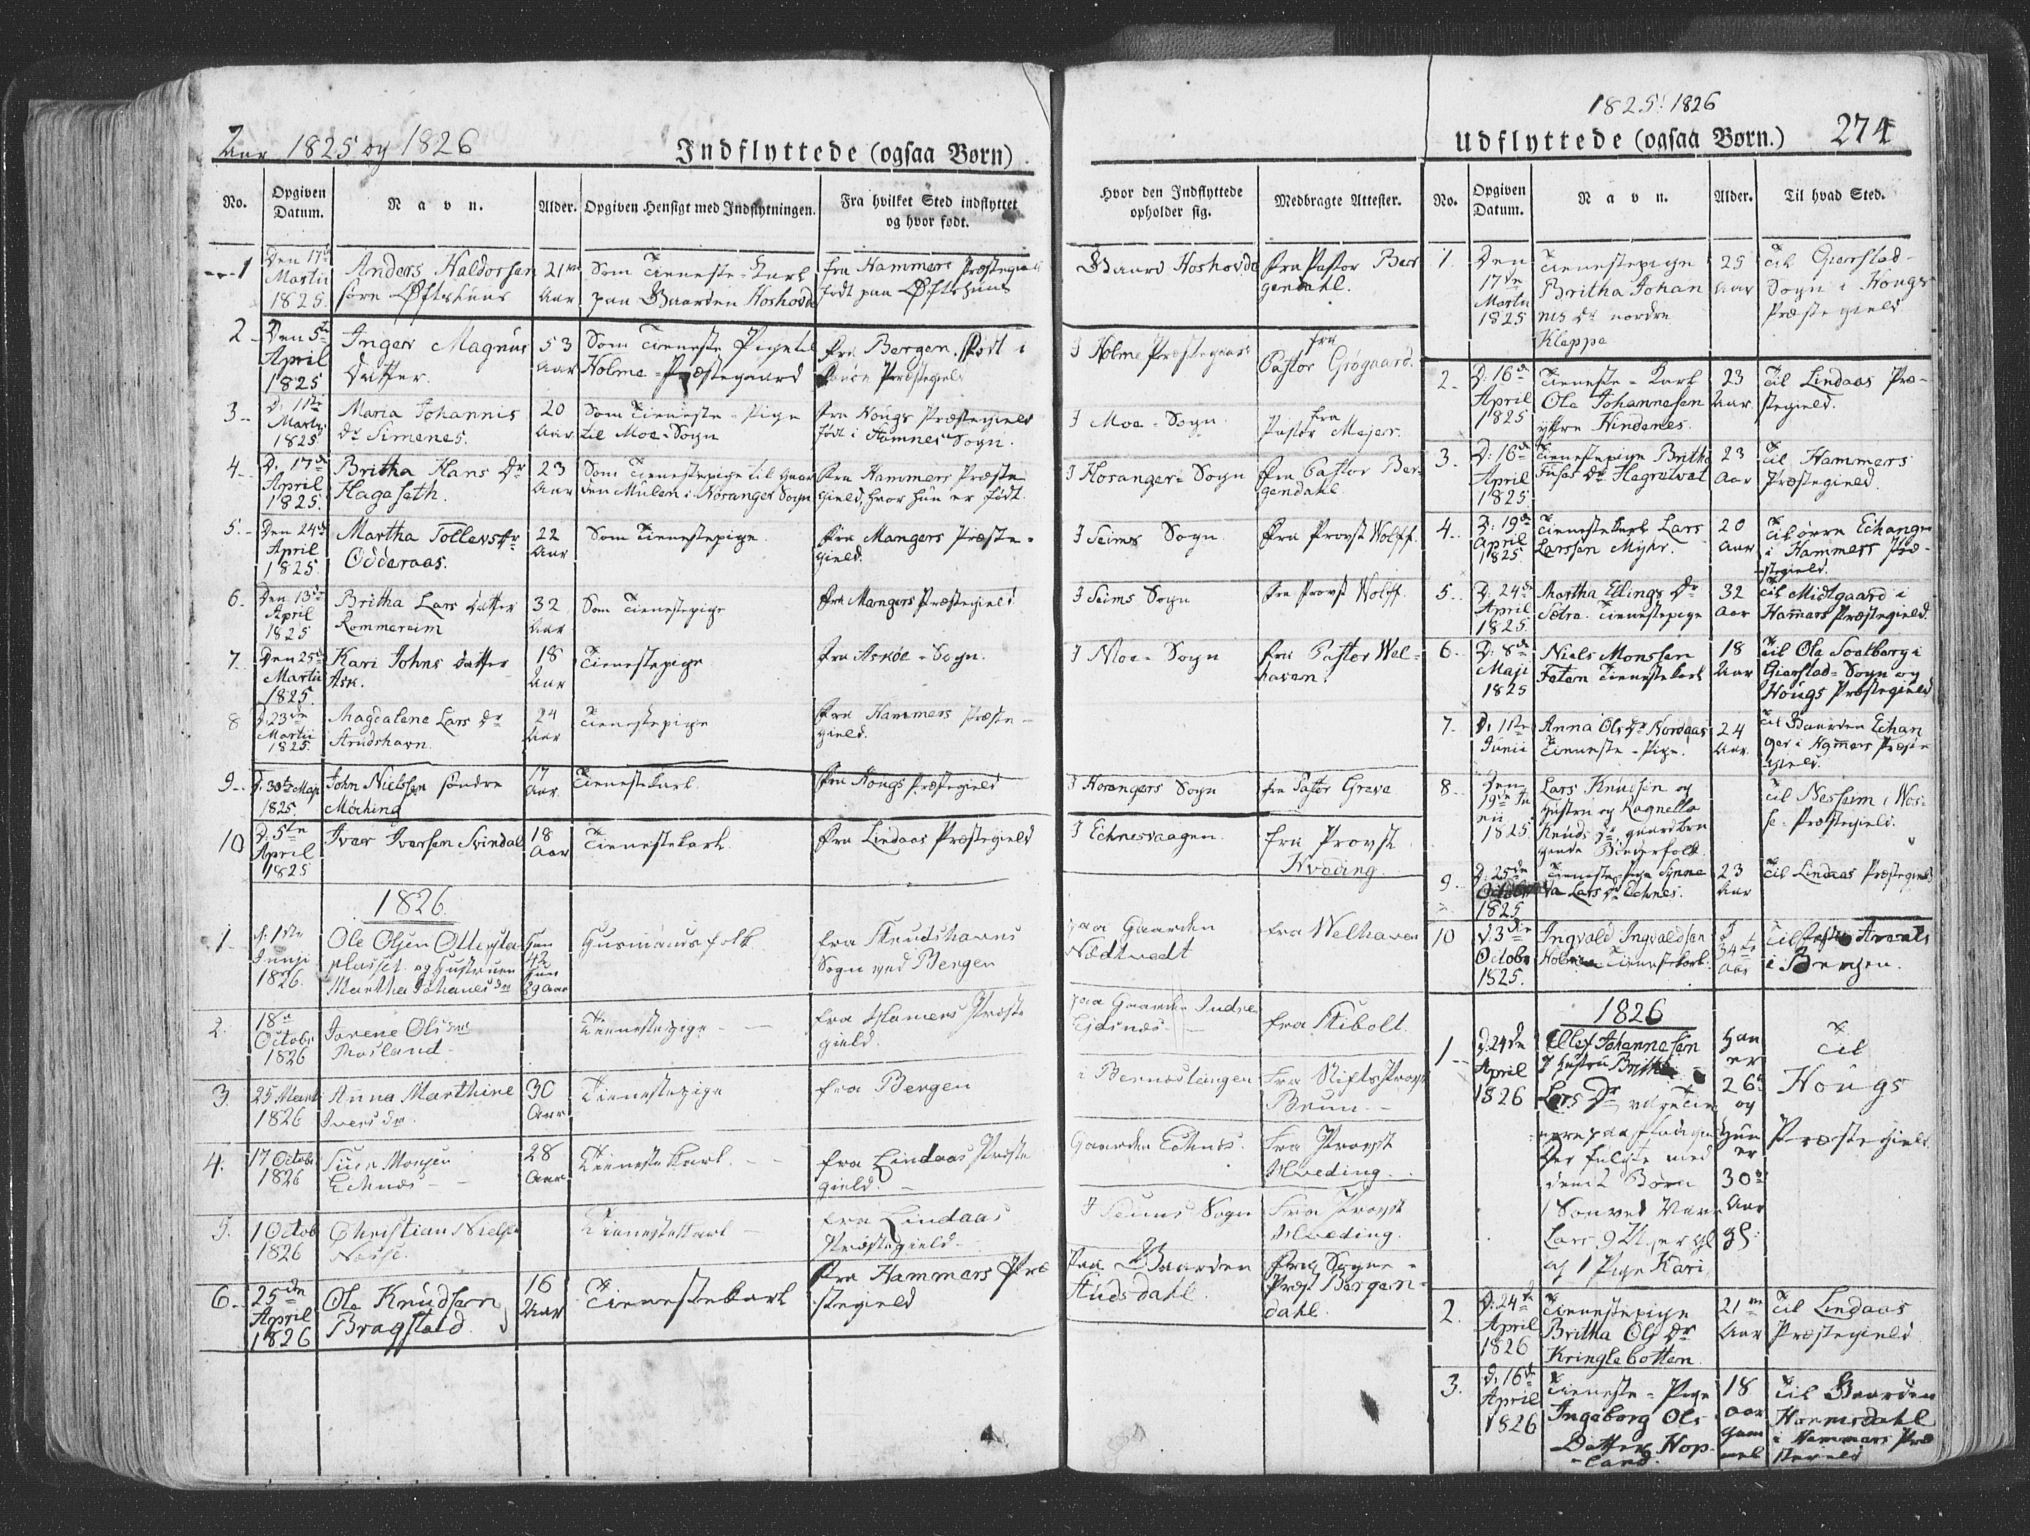 Aar 1825 og 1826
Indflyttede (ogsaa Børn)
No.
Opgiven Datum.
Navn.
Alder.
Opgiven Hensigt med Indflytningen.
Fra hvilket Sted indflyttet og hvor født.
Hvor den Indflyttede opholder sig.
Medbragte Attester.
1
Den 17de Martii 1825.
Anders Haldorsen
21 Aar
Som Tieneste-Karl paa Gaarden Hoshovde
fra Hammers Præstegield født paa Øftshuus
Gaard Hoshovde
Fra Pastor Bergendahl.
2
Den 5te April 1825
Inger Magnus Datter.
53 Aar
Som Tieneste Pige til Holme-Præstegaard
fra Bergen, Født i Præstegield
I Holme Præstegaard
fra Pastor Grøgaard.
3
D. 11te Martii 1825
Maria Johannis Dr Simenes.
20 Aar
Som Tieneste-Pige til Moe-Sogn
fra Hougs Præstegield født i Hamners Sogn.
I Moe-Sogn.
fra Pastor Mejer.
4
D. 17de April 1825.
Britha Hans Dr Hagaseth.
23 Aar
Som Tienestepige til Gaarden Mulen i Hosanger Sogn
fra Hammers Præstegield, hvor hun er født.
I Hosanger-Sogn
Fra Pastor Bergendahl
5
Den 24de April 1825.
Martha Tollevs Dr Odderaas.
22 Aar
Som Tienestepige.
Fra Mangers Præstegield.
I Seims Sogn
Fra Provst Wolff.
6
Den 13de April 1825
Britha Lars Datter Rommereim
32 Aar
Som Tienestepige
fra Mangers Præstegield
I Seims Sogn
Fra Provst Wolff.
7
Den 25de Martii 1825.
Kari Johns Datter Ask.
18 Aar
Tienestepige
fra Askøe-Sogn.
I Moe-Sogn
fra Pastor Welhaven.
8
D. 23de Martii 1825.
Magdalene Lars Dr Strudshavn.
24 Aar
Tienestepige
Fra Hammers Præstegield.
9
D. 30te Maji 1825.
John Nielssen søndre Møching
17 Aar
Tienestekarl
Fra Hougs Præstegield
I Hosangers Sogn
fra Pastor Greve
10
D. 5te April 1825
Iver Iversen Svindal
18 Aar
Tienestekarl.
Fra Lindaas Præstegield
I Echnesvaagen.
fra Provst Hvoding.
1826.
1
d. 1ste Junji 1826.
Ole Olsen og Hustruen Martha Johanes Dr
Han 42 Hun 29 Aar
Huusmandsfolk
fra Sogn ved Bergen
paa Gaarden Nædtvedt
fra Welhaven
2.
18de Octobr 1826
Olsdr Rosland
Tienestepige
fra Hamers Præstegield
paa Gaarden Indre Eidsnæs
fra Kibolt.
3.
25 Marti 1826
Anna Marthine Iversdr
30 Aar
Tienestepige
fra Bergen
i Bernestangen
fra Stiftsprovst Brun
4.
17 Octobr 1826
Monsen Echnæs
28 Aar
Tienestekarl.
fra Lindaas Præstegield.
Gaarden Echnæs.
fra Provst Hvoding.
5.
1 Octob 1826
Christian Niels
Tienestekarl
fra Lindaas Præstegield
I Seims Sogn
fra Provst Hvoding.
6
25de April 1826
Ole Knudsen Bragstad.
16 Aar
Tienestekarl
fra Hammers Præstegield
Paa Gaarden Husdahl.
fra Sogne-Præst Bergendahl.
1825. 1826
Udflyttede (ogsaa Børn.)
274
No.
Opgiven Datum.
Navn.
Alder.
Til hvad Sted.
1.
Den 17de Martii 1825
Tienestepige Britha Johannis Dr nordre Kleppe
25 Aar
Til Gierstad-Sogn i Hougs Præstegield
2.
D. 16de April 1825
Tieneste-Karl Ole Johannesen yttre Hindenes.
23 Aar.
Til Lindaas Præstegield.
3.
D: 16de April 1825
Tienestepige Britha
23 Aar
Til Hammers Præstegield.
4.
D: 19de April 1825
Tienestekarl Lars Larssen Myhr.
20 Aar
Til øvre Echanger i Hammers Præstegield.
5.
D: 24de April 1825
Martha Ellings Dr Sætra. Tienestepige
32 Aar
Til Midtgaard i Hammers Præstegield.
6.
D: 8de Maji 1825
Niels Monssen Fatem Tienestekarl
18 Aar
Til Ole i Gierstad-Sogn og Hougs Præstegield
7.
D. 11te Junii
Anna Ols Dr Nordaas Tieneste-Pige.
24 Aar
Til Gaarden Echanger i Hammers Præstegield.
8.
Den 19de Junii 1825.
Lars Knudsen og Hustru og Ragnella Knuds Dr
Til Nessem i Wosse-Præstegield.
9.
D: 25de October 1825
Tieneste-Pige Synneva Lars Dr Echnes.
23 Aar
Til Lindaas Præstegield
10
D. 3de Octobr 1825.
Ingvald Ingvaldsen Tienestekarl.
34te Aar
Til i Bergen.
1826
1
D. 24de April 1826
Johannesen Hustru Britha Lars Dr
Der fulgte med dem 2 Børn
og 1 Pige Kari
Han er 26 og Hun er 30 Aar
Til Hougs Præstegield
2.
D: 24de April 1826
Tienestepige Britha Ols Dr Kringlebotten.
21 Aar
Til Lindaas Præstegield.
3.
D. 16de April 1826
Tieneste-Pige Ingeborg Ols Datter Hopland.
18 Aar gammel
Til Gaarden Hormsdahl i Hammers Præstegield